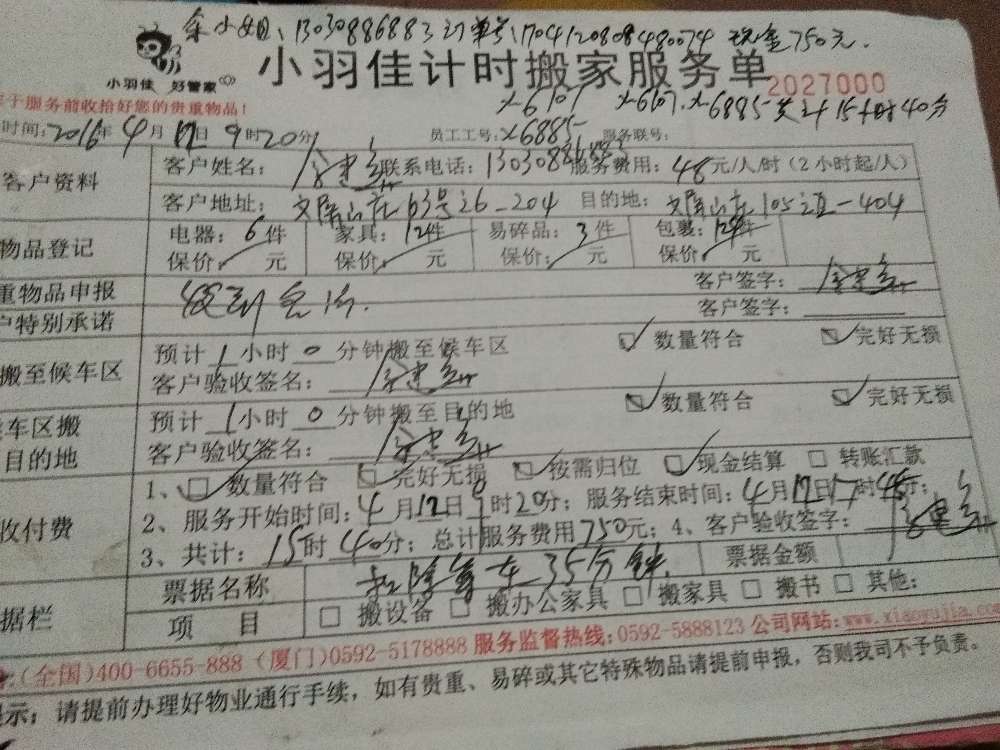 余小姐:13030886883 订单号:1704120808480074 现金750元.
小羽佳 好管家
小羽佳计时搬家服务单
2027000
于服务前收拾好您的贵重物品!
x6101 x6667. x6885 共计15小时40分
时间:2016年4月12日9时20分 员工工号:x6885 服务联号:
客户资料 客户姓名: 联系电话:13030886883 服务费用:48元/人/时(2小时起/人)
客户地址: 63号26-204 目的地: 105 -404
物品登记 电器:6件 家具:12件 易碎品:3件 包裹: 件
保价: 元 保价: 元 保价: 元 保价: 元
重物品申报 客户签字:
户特别承诺 客户签字:
搬至候车区 预计1小时0分钟搬至候车区 数量符合 完好无损
客户验收签名:
车区搬 预计1小时0分钟搬至目的地 数量符合 完好无损
目的地 客户验收签名:
1、 数量符合 完好无损 按需归位 现金结算 转账汇款
收付费 2、服务开始时间:4月12日9时20分; 服务结束时间:4月12日17时45分;
3、共计:15时40分; 总计服务费用750元; 4、客户验收签字:
票据名称 扣除等车35分钟 票据金额
据栏 项 目 搬设备 搬办公家具 搬家具 搬书 其他:
(全国)400-6655-888 (厦门)0592-5178888 服务监督热线:0592-5888123 公司网站:www.xiaoyujia.com
示: 请提前办理好物业通行手续,如有贵重、易碎或其它特殊物品请提前申报,否则我司不予负责。